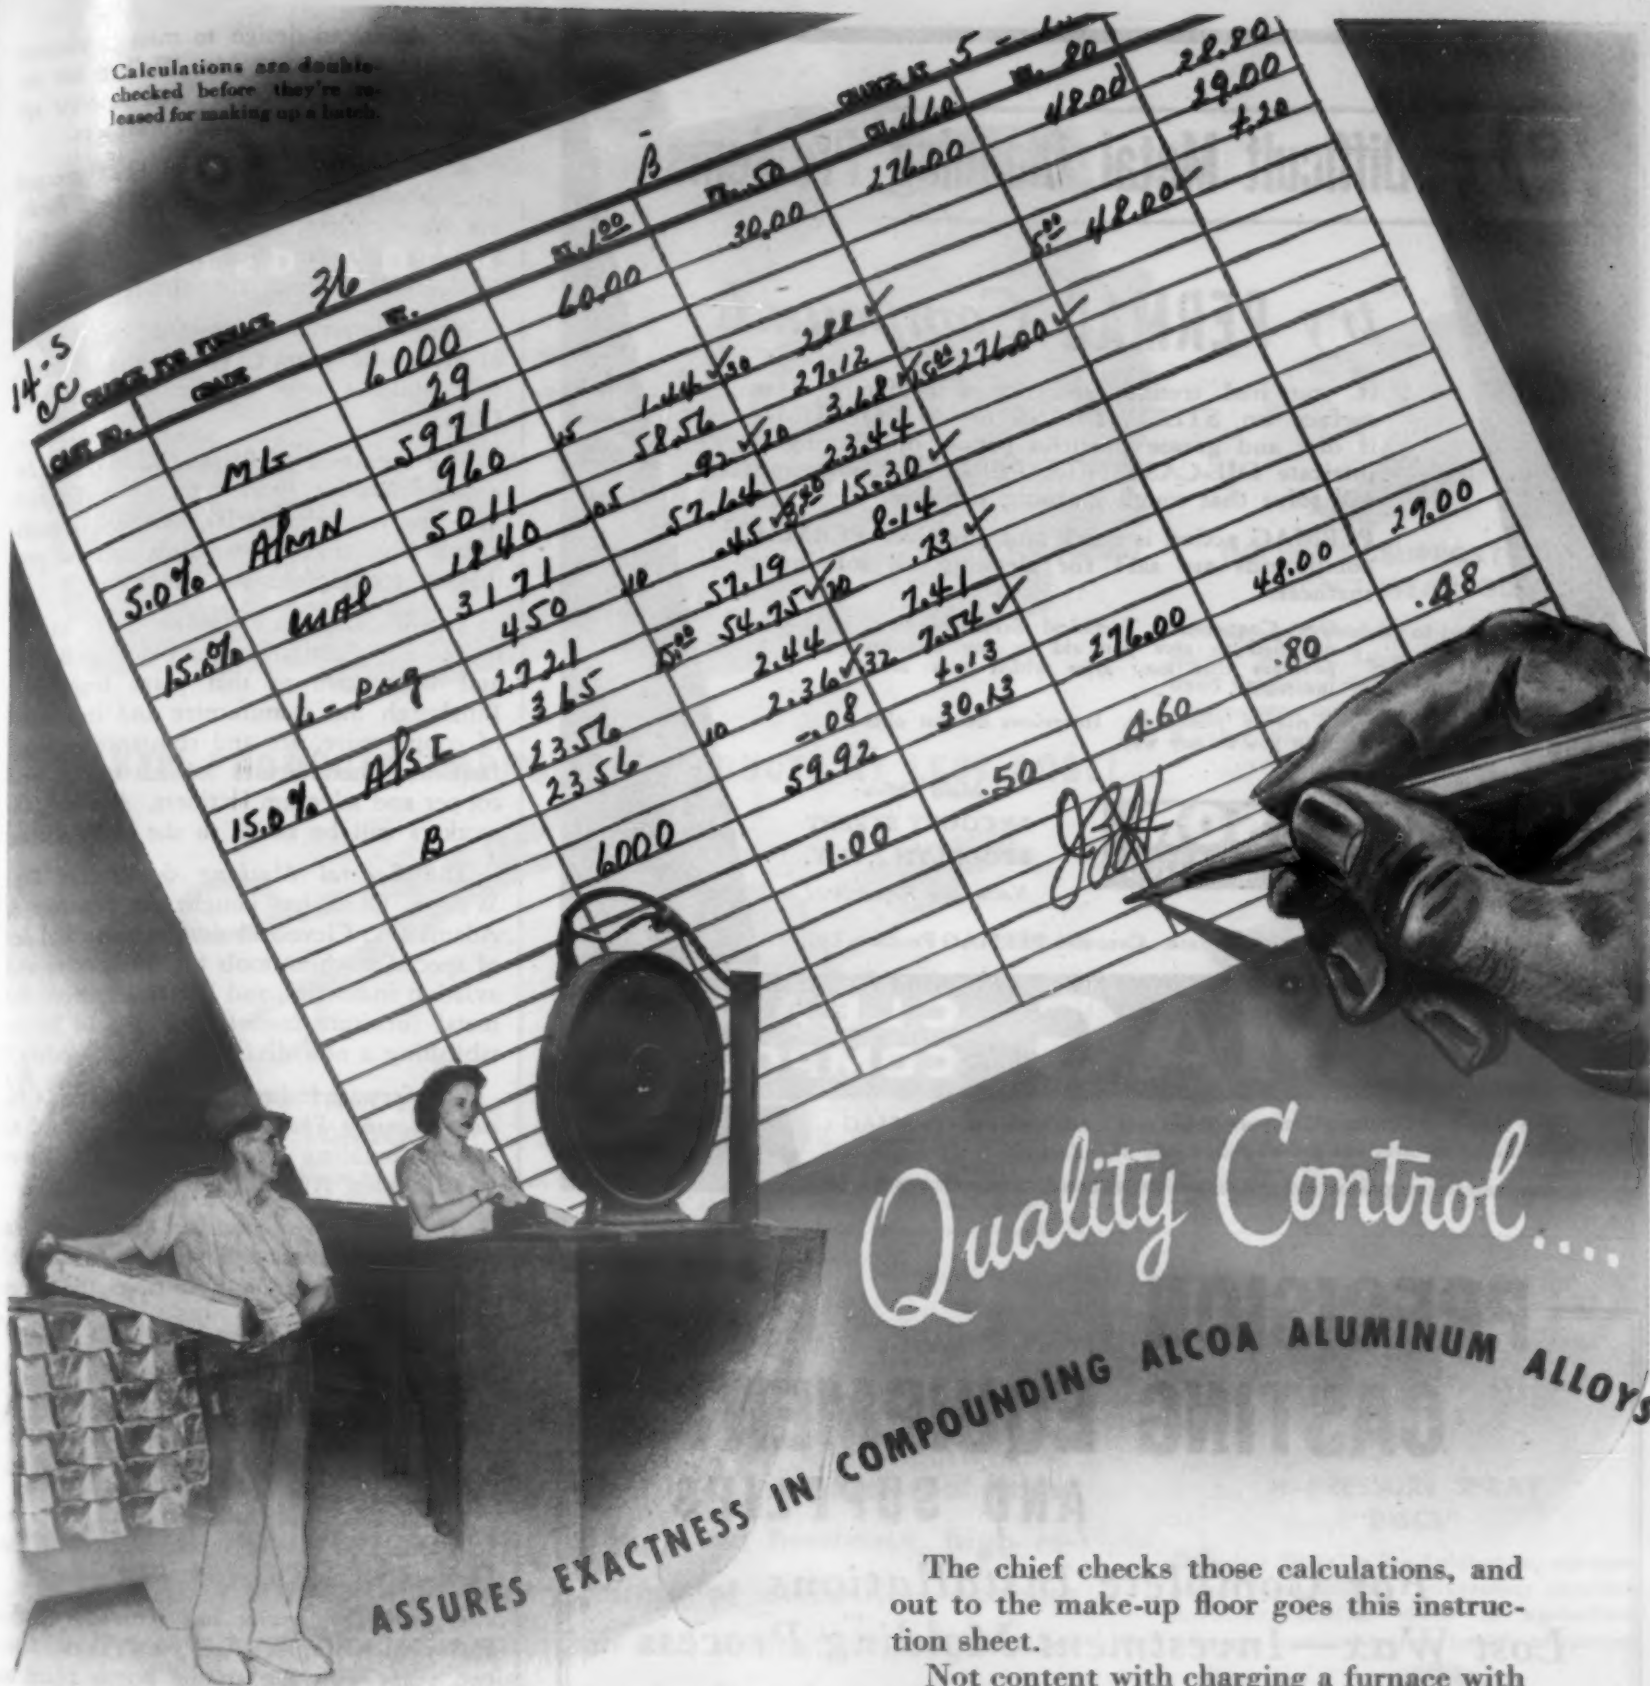 Calculations are double-
checked before they're re-
leased for making up a batch.
14-S
CC
CHARGE FOR FURNACE 36 B CHARGE AT 5 -
CAST NO. GRADE WT. 1.00 .50 4.60 .80
6000 60.00 30.00 276.00 48.00 28.80
MG 29 29.00
5971 +.20
5.0% AlMN 960 15 1.44 ✓ 30 2.88 ✓ 5.00 48.00 ✓
5011 58.56 27.12
15.0% 1840 .05 .92 ✓ 20 3.68 ✓ 15.00 276.00 ✓
3171 57.64 23.44
L-png 450 10 .45 ✓ 15.30 ✓
2721 57.19 8.14
15.0% AlSI 365 15.00 54.75 ✓ 20 .73 ✓
2356 2.44 7.41
B 2356 10 2.36 ✓ 32 7.54 ✓
-.08 +.13
6000 59.92 30.13 276.00 48.00 29.00
1.00 .50 4.60 .80 .48
Quality Control....
ASSURES EXACTNESS IN COMPOUNDING ALCOA ALUMINUM ALLOYS
The chief checks those calculations, and
out to the make-up floor goes this instruc-
tion sheet.
Not content with charging a furnace with